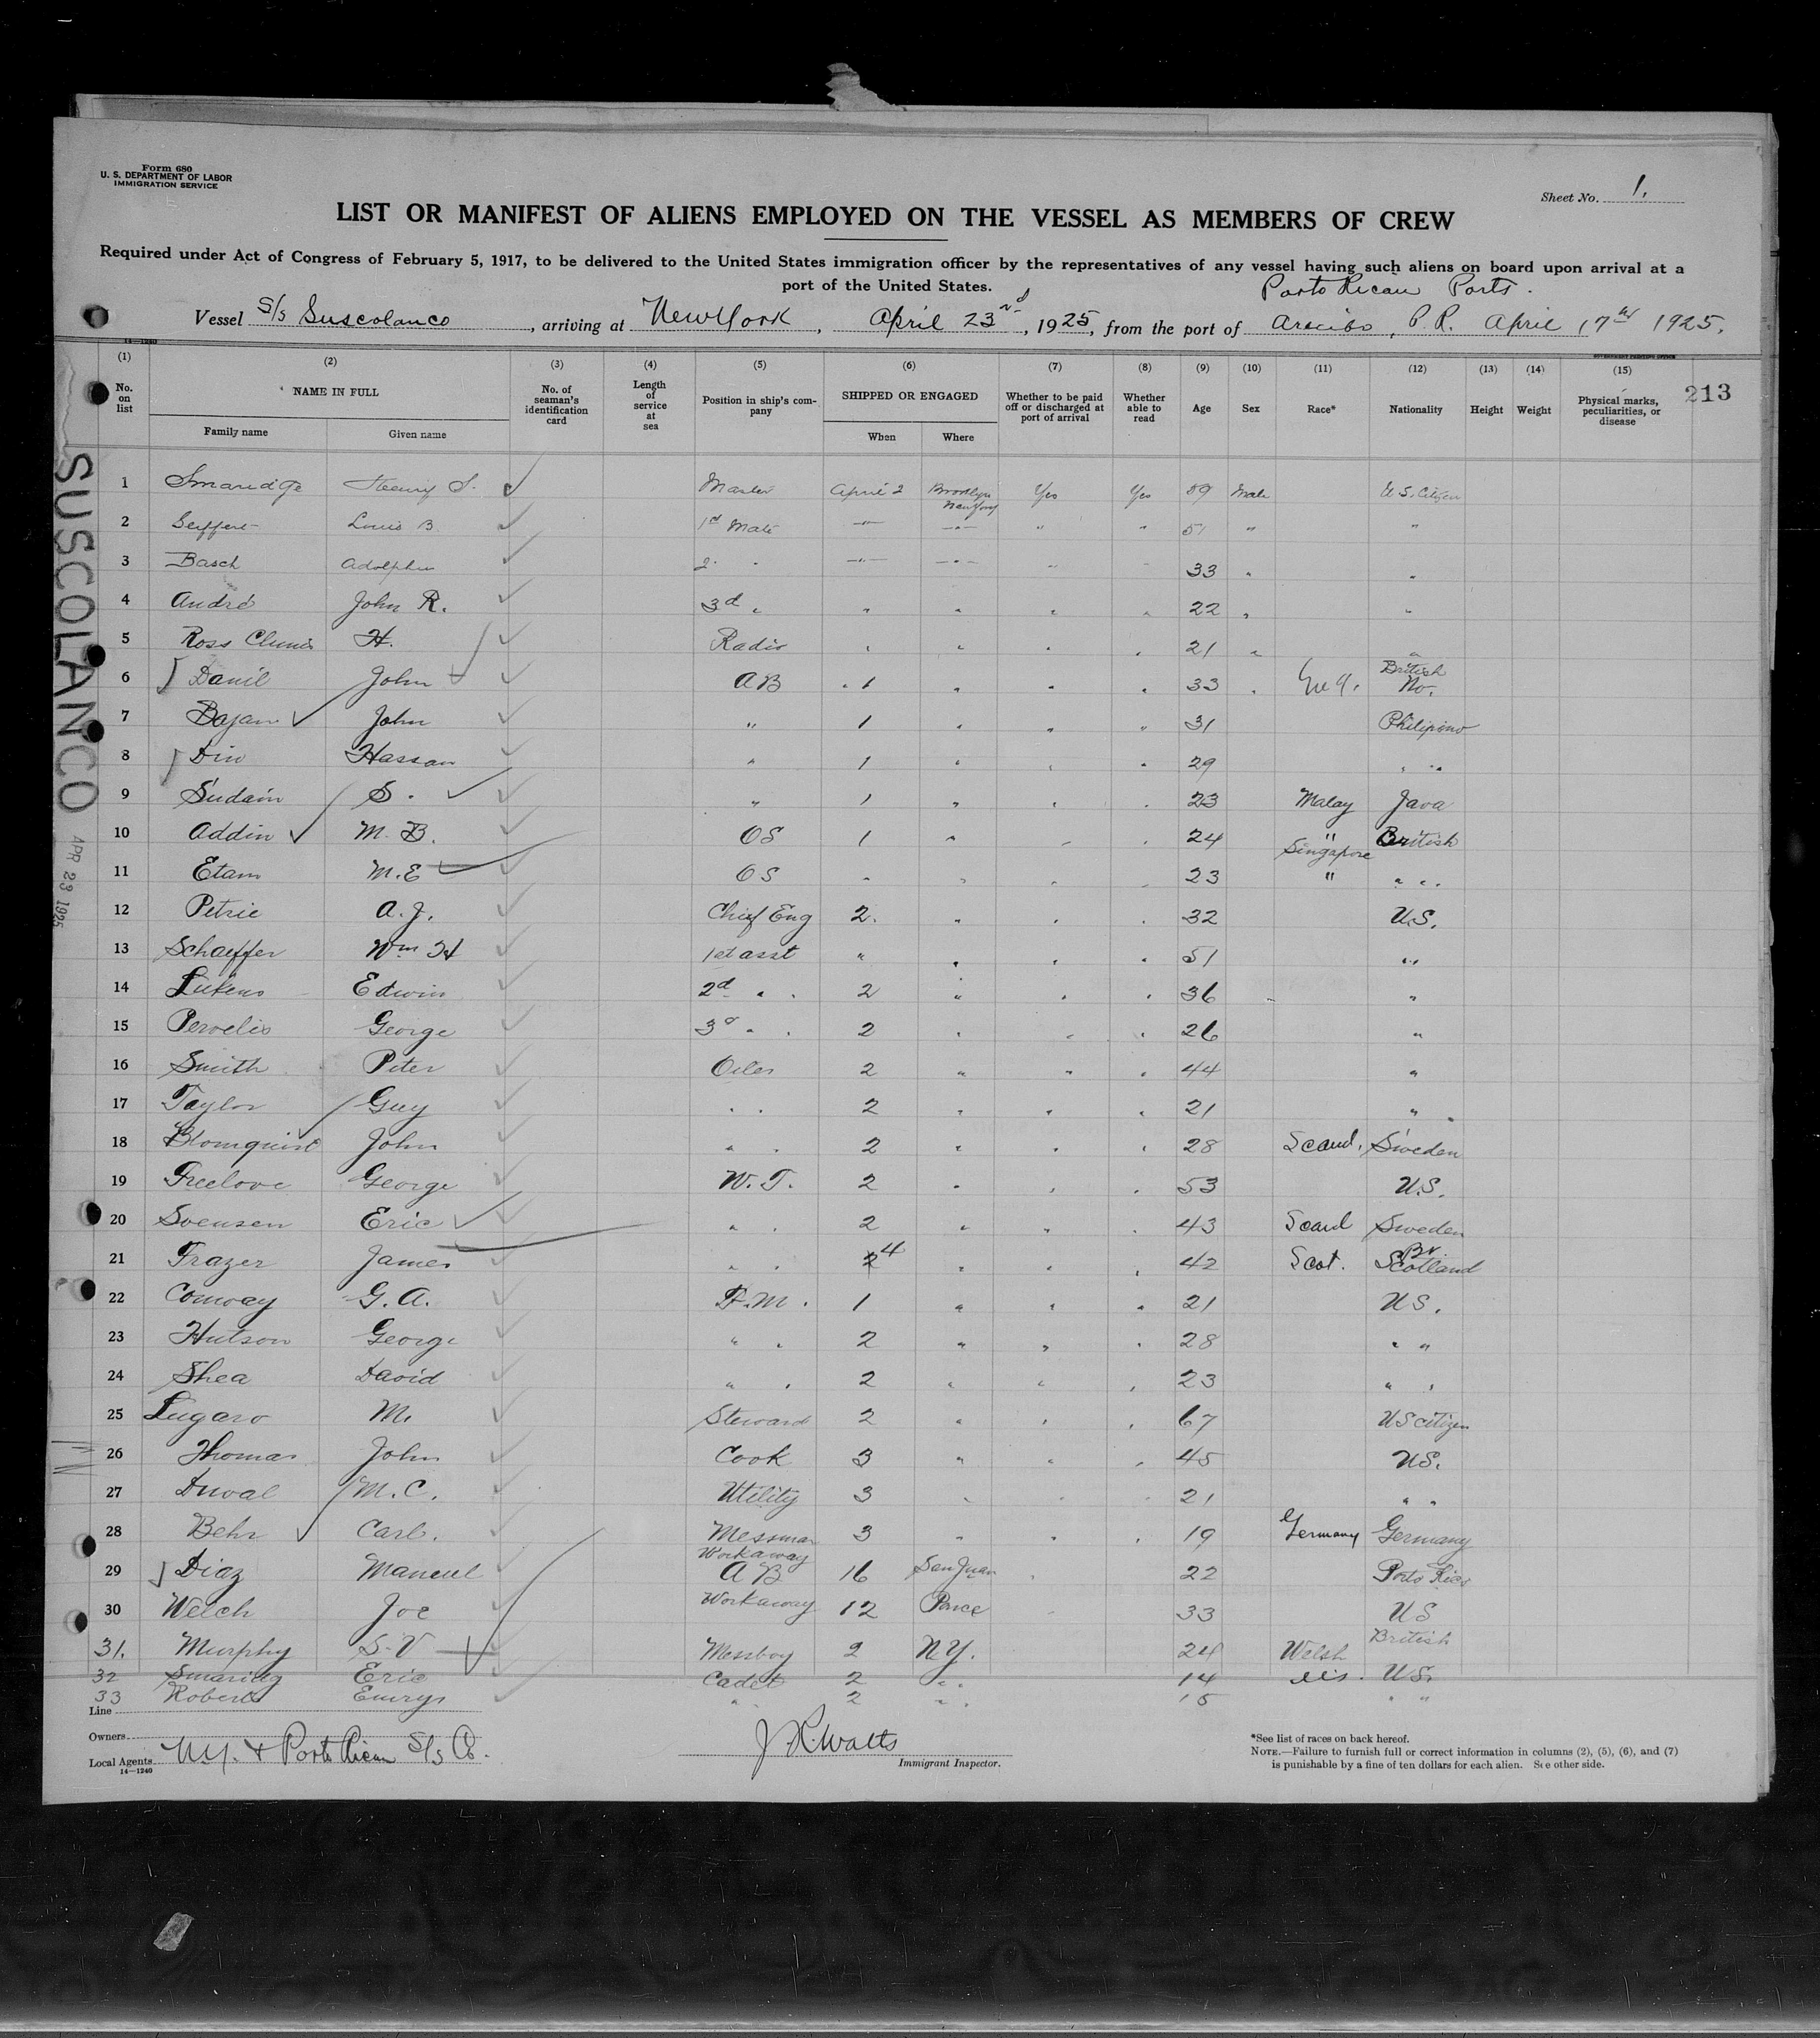 Form 680
U. S. DEPARTMENT OF LABOR
IMMIGRATION SERVICE
Sheet No. 1.
LIST OR MANIFEST OF ALIENS EMPLOYED ON THE VESSEL AS MEMBERS OF CREW
Required under Act of Congress of February 5, 1917, to be delivered to the United States immigration officer by the representatives of any vessel having such aliens on board upon arrival at a
port of the United States.
Porto Rican Ports.
Vessel S/s Suscolanco, arriving at New York, April 23rd, 1925, from the port of Arecibo, P.R. April 17th 1925.
14—1240
GOVERNMENT PRINTING OFFICE
(1) (2) (3) (4) (5) (6) (7) (8) (9) (10) (11) (12) (13) (14) (15)
No. on list NAME IN FULL Family name Given name No. of seaman's identification card Length of service at sea Position in ship's company SHIPPED OR ENGAGED When Where Whether to be paid off or discharged at port of arrival Whether able to read Age Sex Race* Nationality Height Weight Physical marks, peculiarities, or disease
213
SUSCOLANCO
APR 23 1925
1 Smaridge Henry S. Master April 2 Brooklyn New York Yes Yes 59 Male U.S. Citizen
2 Seiffert Louis B 1st Mate " " " " 51 " "
3 Basch Adolphus 2 " " " " 33 " "
4 André John R. 3d " " " " " 22 " "
5 Ross H. Radio " " " " 21 " "
6 Danil John AB " 1 " " " 33 " British
7 Bajan John " 1 " " " 31 Philipino
8 Din Hassan " 1 " " " 29 " "
9 Sudain S. " 1 " " " 23 Malay Java
10 Addin M. B. OS 1 " " " 24 " Singapore British
11 Etam M.E OS " " " " 23 " " "
12 Petrie A. J. Chief Eng 2. " " " 32 U.S.
13 Schaeffer Wm H 1st asst " " " " 51 " "
14 Lukens Edwin 2d " " 2 " " " 36 "
15 Pervelis George 3d " " 2 " " " 26 "
16 Smith Peter Oiler 2 " " " 44 "
17 Taylor Guy " " 2 " " " 21 " "
18 Blomquist John " " 2 " " " 28 Scand. Sweden
19 Freelove George W. T. 2 " " " 53 U.S.
20 Svensen Eric " " 2 " " " 43 Scand Sweden
21 Frazer James " " 4 " " " 42 Scot. Br. Scotland
22 Conway G. A. F.M. 1 " " " 21 US.
23 Hutson George " " 2 " " " 28 " "
24 Shea David " " 2 " " " 23 " "
25 Lugaro M. Steward 2 " " " 67 US citizen
26 Thomas John Cook 3 " " " 45 US.
27 Duval M. C. Utility 3 " " " 21 " "
28 Behr Carl. Messman 3 " " " 19 Germany Germany
29 Diaz Manuel Workaway AB 16 San Juan " 22 Porto Rico
30 Welch Joe Workaway 12 Ponce " 33 US
31. Murphy S. V Messboy 2 N.Y. 24 Welsh British
32 Smaridg Eric Cadet 2 " " 14 U.S.
33 Roberts Emrys " " 2 " " 15 " "
Line
Owners
Local Agents N.Y. & Porto Rican S/s Co.
14—1240
J R Watts
Immigrant Inspector.
*See list of races on back hereof.
NOTE.—Failure to furnish full or correct information in columns (2), (5), (6), and (7)
is punishable by a fine of ten dollars for each alien. See other side.